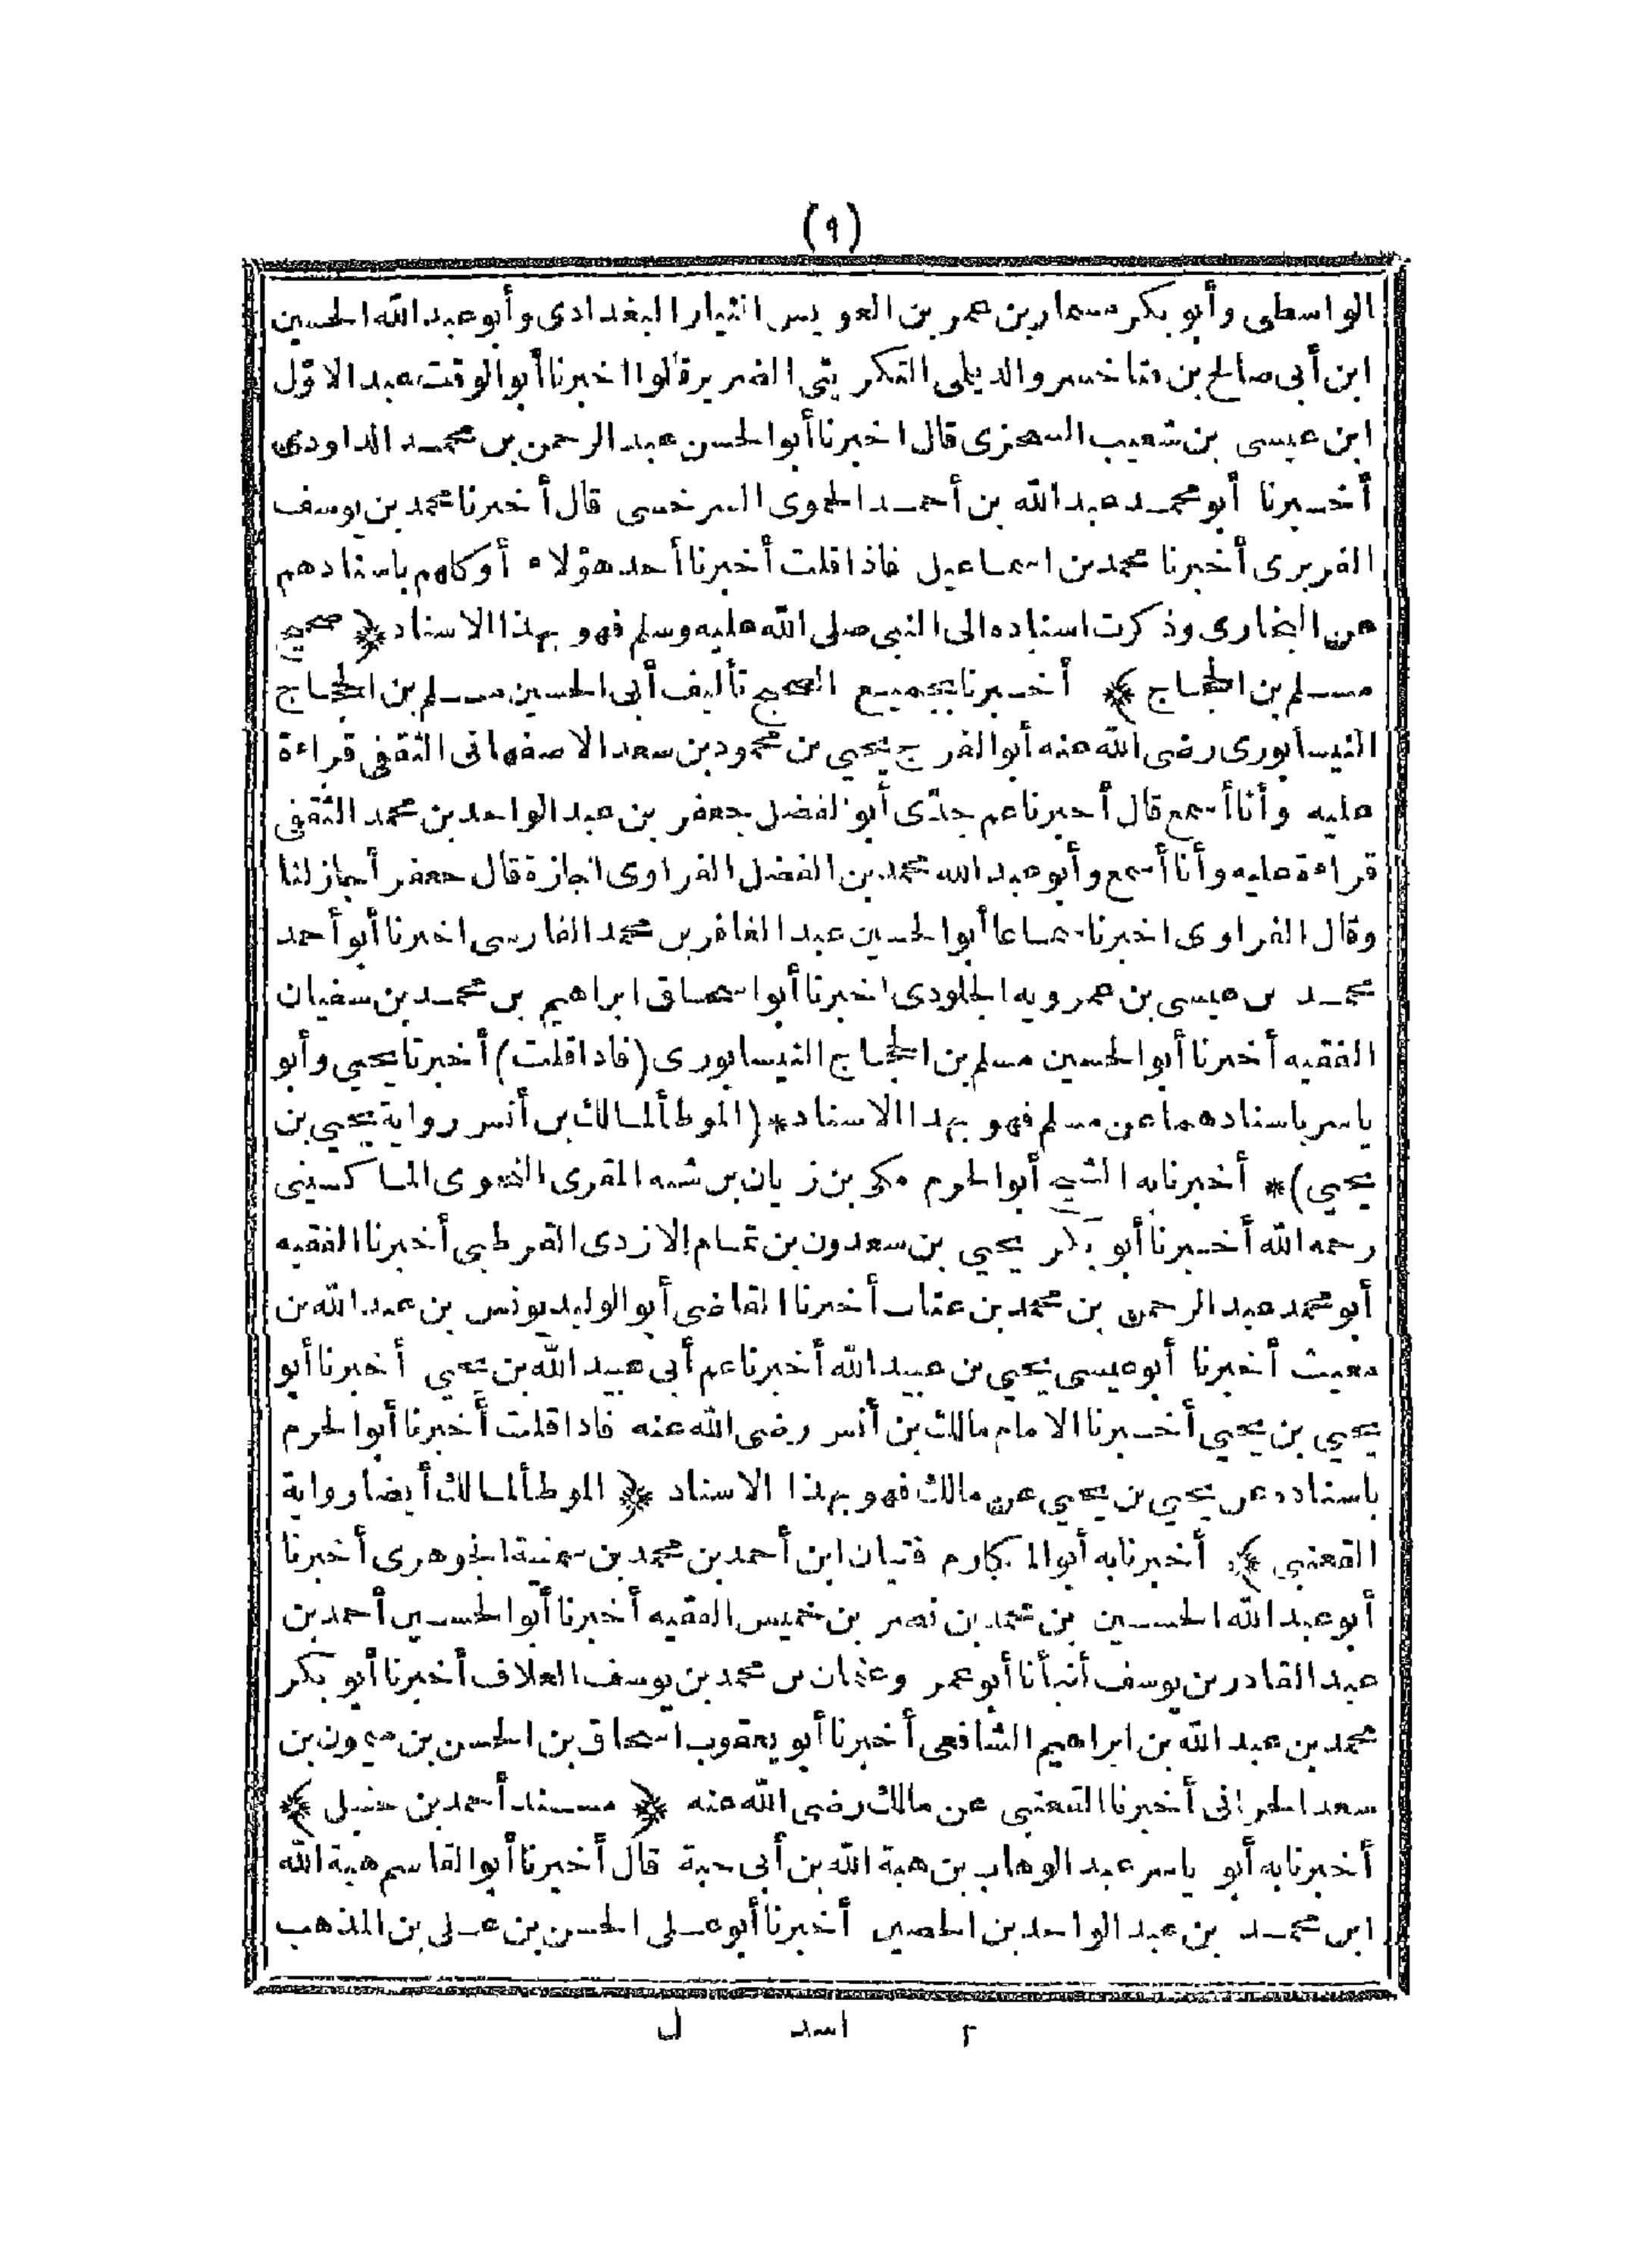 (٩)
الواسطى وأبو بكر مسمار بن عمر بن العويس النيار البغدادى وأبو عبد الله الحسين
ابن أبى صالح بن فناخسرو الديلى التكريتى الضرير قالوا اخبرنا أبو الوقت عبد الاوّل
ابن عيسى بن شعيب السجزى قال اخبرنا أبو الحسن عبد الرحمن بن محمد الداودى
أخبرنا أبو محمد عبد الله بن أحمد الحموى السرخسى قال أخبرنا محمد بن يوسف
الفربرى أخبرنا محمد بن اسماعيل فاذا قلت أخبرنا أحد هؤلاء أو كلهم باسنادهم
عن البخارى وذكرت اسناده الى النبى صلى الله عليه وسلم فهو بهذا الاسناد ﴿ صحيح
مسلم بن الحجاج ﴾ أخبرنا بجميع الصحيح تأليف أبى الحسين مسلم بن الحجاج
النيسابورى رضى الله عنه أبو الفرج يحيى بن محمود بن سعد الاصفهانى الثقفى قراءة
عليه وأنا أسمع قال أخبرنا عم جدّى أبو الفضل جعفر بن عبد الواحد بن محمد الثقفى
قراءة عليه وأنا أسمع وأبو عبد الله محمد بن الفضل الفراوى اجازة قال جعفر أجاز لنا
وقال الفراوى اخبرنا سماعا أبو الحسين عبد الغافر بن محمد الفارسى اخبرنا أبو أحمد
محمد بن عيسى بن عمرويه الجلودى اخبرنا أبو اسحاق ابراهيم بن محمد بن سفيان
الفقيه أخبرنا أبو الحسين مسلم بن الحجاج النيسابورى (فاذا قلت) أخبرنا يحيى وأبو
ياسر باسنادهما عن مسلم فهو بهذا الاسناد * (الموطأ لمالك بن أنس رواية يحيى بن
يحيى) * أخبرنا به الشيخ أبو الحرم مكى بن زيان بن شبه المقرى النحوى الماكسينى
رحمه الله أخبرنا أبو بكر يحيى بن سعدون بن تمام الازدى القرطبى أخبرنا الفقيه
أبو محمد عبد الرحمن بن محمد بن عتاب أخبرنا القاضى أبو الوليد يونس بن عبد الله بن
مغيث أخبرنا أبو عيسى يحيى بن عبيد الله أخبرنا عم أبى عبيد الله بن يحيى أخبرنا أبو
يحيى بن يحيى أخبرنا الامام مالك بن أنس رضى الله عنه فاذا قلت أخبرنا أبو الحرم
باسناده عن يحيى بن يحيى عن مالك فهو بهذا الاسناد ﴿ الموطأ لمالك أيضا رواية
القعنبى ﴾ أخبرنا به أبو المكارم فتيان ابن أحمد بن محمد بن سمنية الجوهرى أخبرنا
أبو عبد الله الحسين بن محمد بن نصر بن خميس الفقيه أخبرنا أبو الحسين أحمد بن
عبد القادر بن يوسف أنبأنا أبو عمر وعثمان بن محمد بن يوسف العلاف أخبرنا أبو بكر
محمد بن عبد الله بن ابراهيم الشافعى أخبرنا أبو يعقوب اسحاق بن الحسن بن ميمون بن
سعد الحرانى أخبرنا القعنبى عن مالك رضى الله عنه ﴿ مسند أحمد بن حنبل ﴾
أخبرنا به أبو ياسر عبد الوهاب بن هبة الله بن أبى حبة قال أخبرنا أبو القاسم هبة الله
ابن محمد بن عبد الواحد بن الحصين أخبرنا أبو على الحسن بن على بن المذهب
٢ اسد ل